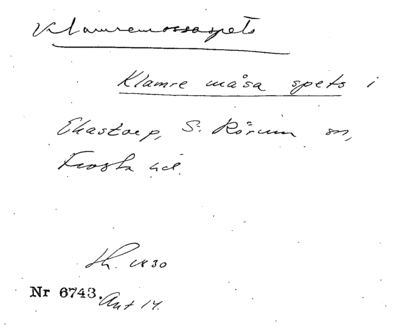 Klamremossaspets
Klamre måsa spets i
Ekastorp, S. Rörum sn,
Frosta hd.
Nr 6743.